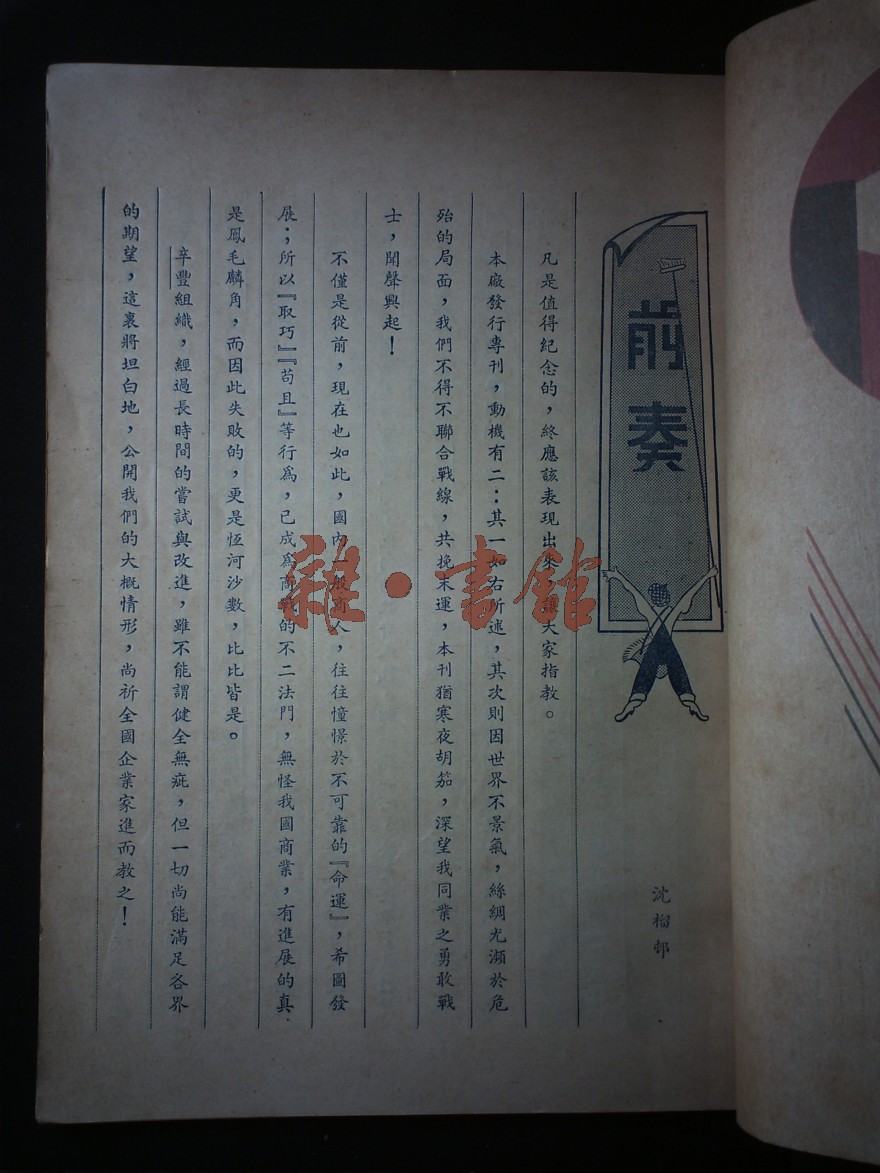 前奏
沈榴邨
凡是值得紀念的，終應該表現出來，讓大家指教。
本廠發行專刊，動機有二：其一如右所述，其次則因世界不景氣，絲綢尤瀕於危
殆的局面，我們不得不聯合戰線，共挽末運，本刊猶寒夜胡笳，深望我同業之勇敢戰
士，聞聲興起！
不僅是從前，現在也如此，國內一般商人，往往憧憬於不可靠的『命運』，希圖發
展；所以『取巧』『苟且』等行爲，已成爲商戰的不二法門，無怪我國商業，有進展的真
是鳳毛麟角，而因此失敗的，更是恆河沙數，比比皆是。
辛豐組織，經過長時間的嘗試與改進，雖不能謂健全無疵，但一切尚能滿足各界
的期望，這裏將坦白地，公開我們的大概情形，尚祈全國企業家進而教之！
雜·書館